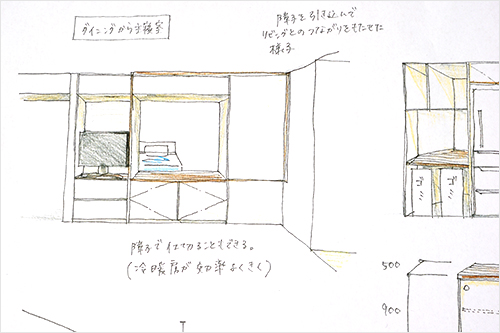 ダイニングから予備室
障子を引き込んで
リビングとのつながりをもたせた
様子
障子で仕切ることもできる。
(冷暖房が効率よくきく)
ゴミ
ゴミ
500
900